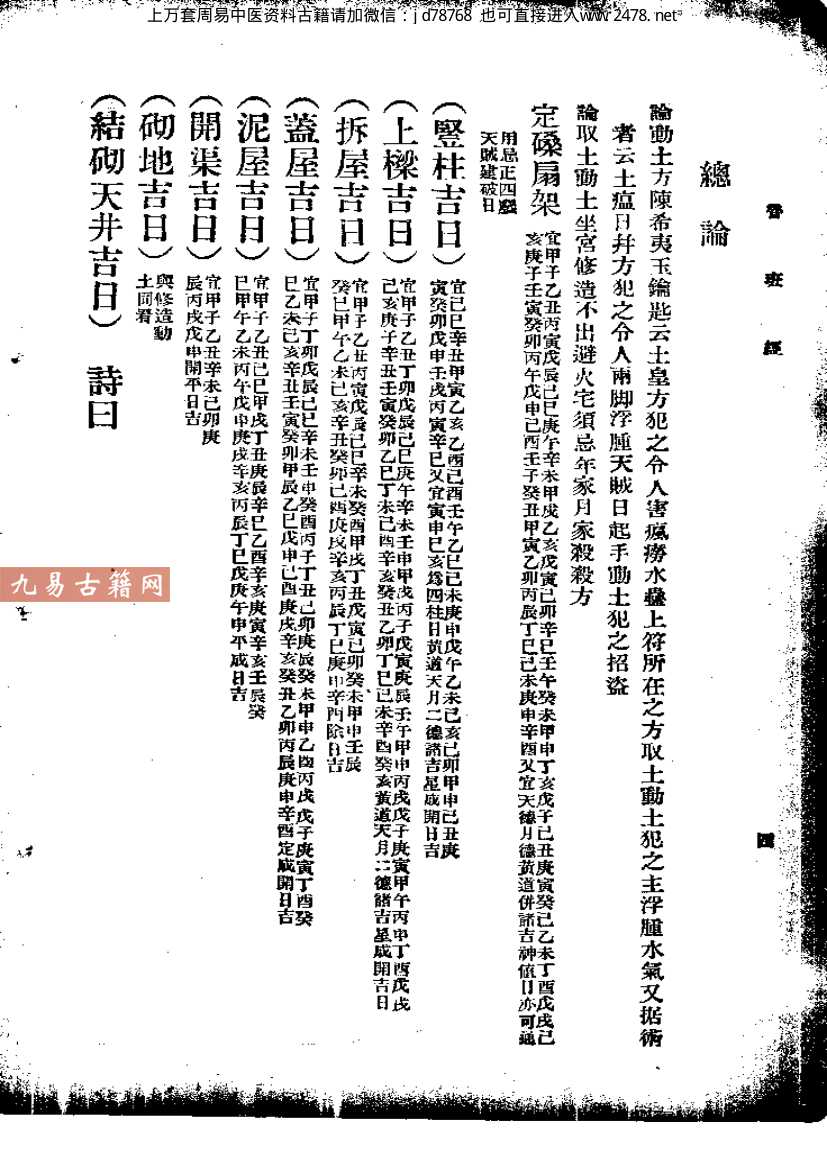 上万套周易中医资料古籍请加微信：jd78768 也可直接进入www.2478.net
魯班經
四
總論
論動土方陳希夷玉鑰匙云土皇方犯之令人害瘋癆水蠱土符所在之方取土動土犯之主浮腫水氣又据術
者云土瘟日幷方犯之令人兩脚浮腫天賊日起手動土犯之招盜
論取土動土坐宮修造不出避火宅須忌年家月家殺殺方
定磉扇架
宜甲子乙丑丙寅戊辰己巳庚午辛未甲戌乙亥戊寅己卯辛巳壬午癸未甲申丁亥戊子己丑庚寅癸巳乙未丁酉戊戌己
亥庚子壬寅癸卯丙午戊申己酉壬子癸丑甲寅乙卯丙辰丁巳己未庚申辛酉又宜天德月德黃道併諸吉神值日亦可通
用忌正四廢
天賊建破日
（豎柱吉日）
宜己巳辛丑甲寅乙亥乙酉己酉壬午乙巳己未庚申戊午乙未己亥己卯甲申己丑庚
寅癸卯戊申壬戌丙寅辛巳又宜寅申巳亥爲四柱日黃道天月二德諸吉星成開日吉
（上樑吉日）
宜甲子乙丑丁卯戊辰己巳庚午辛未壬申甲戌丙子戊寅庚辰壬午甲申丙戌戊子庚寅甲午丙申丁酉戊戌
己亥庚子辛丑壬寅癸卯乙巳丁未己酉辛亥癸丑乙卯丁巳己未辛酉癸亥黃道天月二德諸吉星成開吉日
（拆屋吉日）
宜甲子乙丑丙寅戊辰己巳辛未癸酉甲戌丁丑戊寅己卯癸未甲申壬辰
癸巳甲午乙未己亥辛丑癸卯己酉庚戌辛亥丙辰丁巳庚申辛酉除日吉
（蓋屋吉日）
宜甲子丁卯戊辰己巳辛未壬申癸酉丙子丁丑己卯庚辰癸未甲申乙酉丙戌戊子庚寅丁酉癸
巳乙未己亥辛丑壬寅癸卯甲辰乙巳戊申己酉庚戌辛亥癸丑乙卯丙辰庚申辛酉定成開日吉
（泥屋吉日）
宜甲子乙丑己巳甲戌丁丑庚辰辛巳乙酉辛亥庚寅辛亥壬辰癸
巳甲午乙未丙午戊申庚戌辛亥丙辰丁巳戊庚午申平成日吉
（開渠吉日）
宜甲子乙丑辛未己卯庚
辰丙戌戊申開平日吉
（砌地吉日）
與修造動
土同看
（結砌天井吉日）
詩曰
九易古籍网